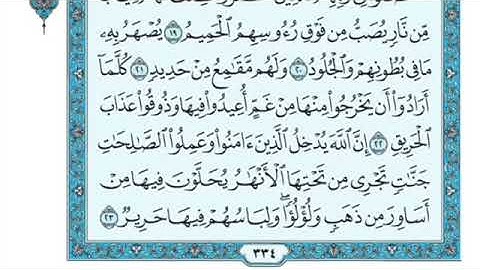 مِّن نَّارٍ يُصَبُّ مِن فَوْقِ رُءُوسِهِمُ ٱلْحَمِيمُ ١٩ يُصْهَرُ بِهِۦ
مَا فِى بُطُونِهِمْ وَٱلْجُلُودُ ٢٠ وَلَهُم مَّقَٰمِعُ مِنْ حَدِيدٍ ٢١ كُلَّمَآ
أَرَادُوٓا۟ أَن يَخْرُجُوا۟ مِنْهَا مِنْ غَمٍّ أُعِيدُوا۟ فِيهَا وَذُوقُوا۟ عَذَابَ
ٱلْحَرِيقِ ٢٢ إِنَّ ٱللَّهَ يُدْخِلُ ٱلَّذِينَ ءَامَنُوا۟ وَعَمِلُوا۟ ٱلصَّٰلِحَٰتِ
جَنَّٰتٍ تَجْرِى مِن تَحْتِهَا ٱلْأَنْهَٰرُ يُحَلَّوْنَ فِيهَا مِنْ
أَسَاوِرَ مِن ذَهَبٍ وَلُؤْلُؤًا ۖ وَلِبَاسُهُمْ فِيهَا حَرِيرٌ ٢٣
٣٣٤